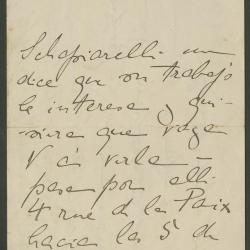 Schapiarelli me
dice que su trabajo
le interesa y qui-
siera que vaya
V à verla –
pase por allí
4 rue de la Paix
hacia las 5 de